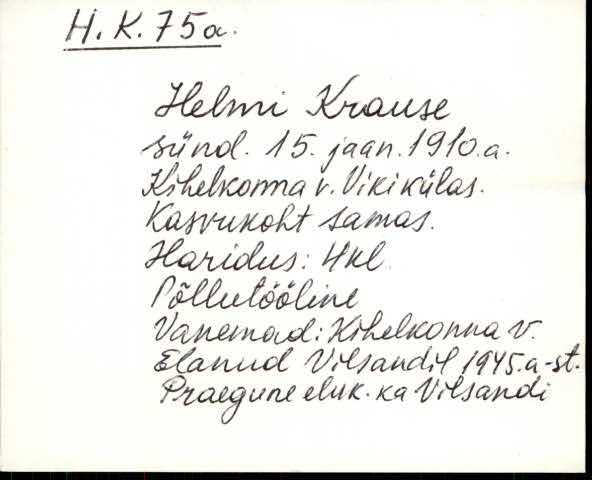 H. K. 75a.
Helmi Krause
sünd. 15. jaan. 1910. a.
Kihelkonna v. Viki külas.
Kasvukoht samas.
Haridus: 4 kl.
Põllutööline
Vanemad: Kihelkonna v.
Elanud Vilsandil 1945. a-st.
Praegune eluk. ka Vilsandi